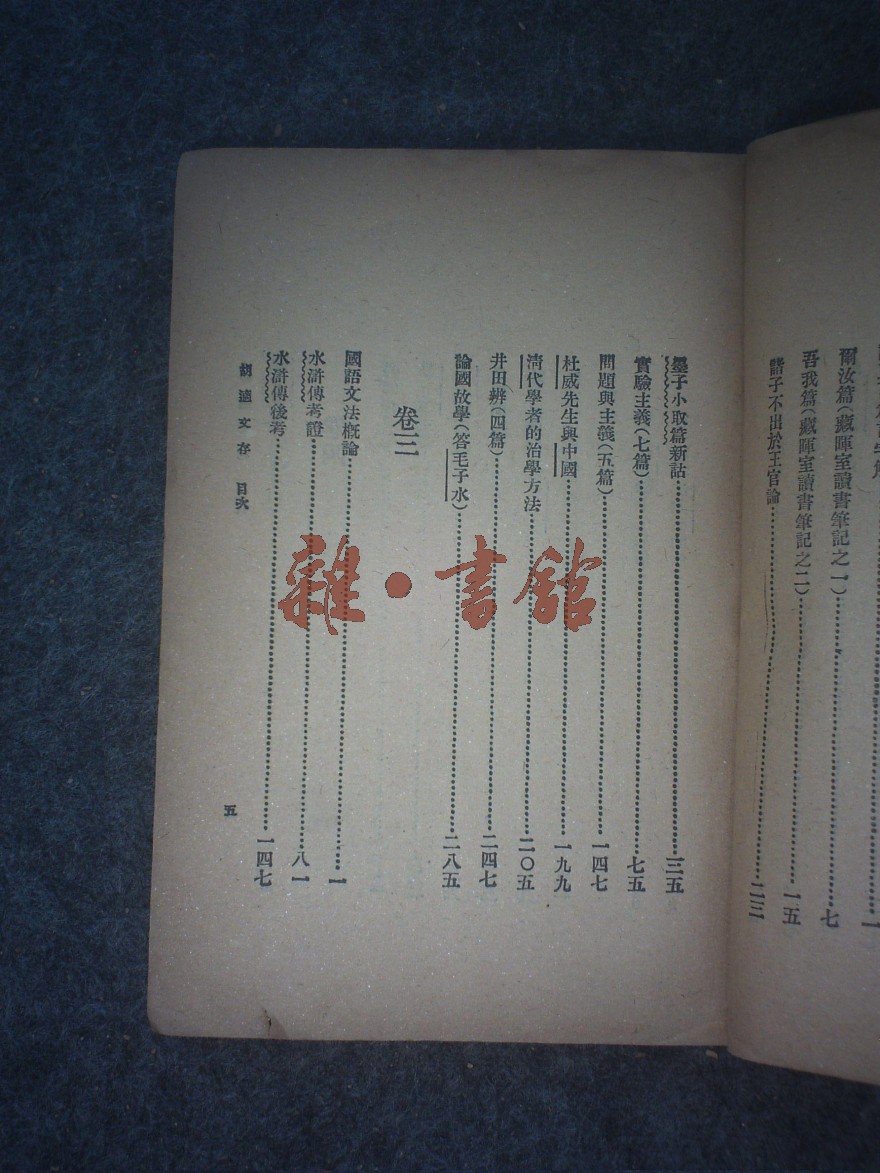 爾汝篇(藏暉室讀書筆記之一)……七
吾我篇(藏暉室讀書筆記之二)……一五
諸子不出於王官論……二三
墨子小取篇新詁……三五
實驗主義(七篇)……七五
問題與主義(五篇)……一四七
杜威先生與中國……一九九
清代學者的治學方法……二〇五
井田辨(四篇)……二四七
論國故學(答毛子水)……二八五
卷三
國語文法概論……一
水滸傳考證……八一
水滸傳後考……一四七
胡適文存 目次
五
雜·書館